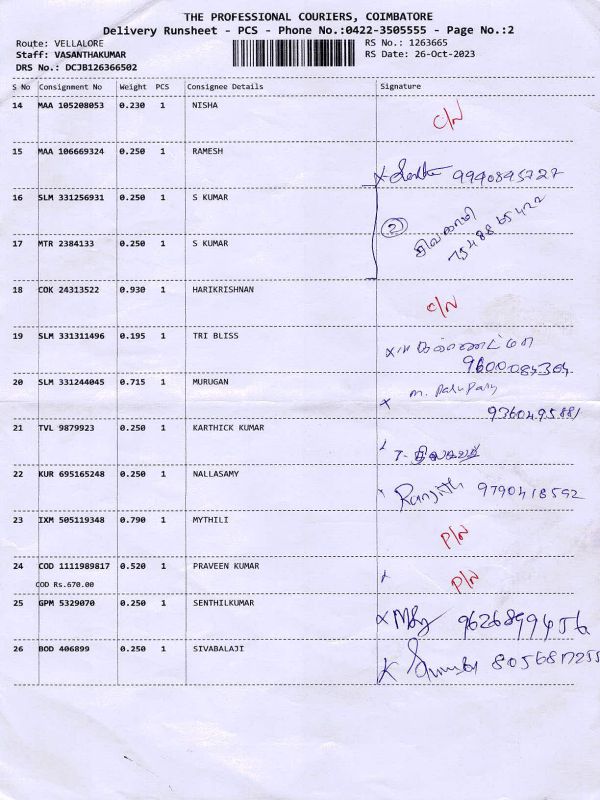 THE PROFESSIONAL COURIERS, COIMBATORE
Delivery Runsheet - PCS - Phone No.:0422-3505555 - Page No.:2
Route: VELLALORE RS No.: 1263665
Staff: VASANTHAKUMAR RS Date: 26-Oct-2023
DRS No.: DCJB126366502
S No Consignment No Weight PCS Consignee Details Signature
14 MAA 105208053 0.230 1 NISHA C/N
15 MAA 106669324 0.250 1 RAMESH
X 9940895727
16 SLM 331256931 0.250 1 S KUMAR
2 சிவகாமி
7548865422
17 MTR 2384133 0.250 1 S KUMAR
18 COK 24313522 0.930 1 HARIKRISHNAN C/N
19 SLM 331311496 0.195 1 TRI BLISS
X
9600084364
20 SLM 331244045 0.715 1 MURUGAN
X 9360495881
21 TVL 9879923 0.250 1 KARTHICK KUMAR
22 KUR 695165248 0.250 1 NALLASAMY Ranjith 9790418592
23 IXM 505119348 0.790 1 MYTHILI P/N
24 COD 1111989817 0.520 1 PRAVEEN KUMAR P/N
COD Rs.670.00
25 GPM 5329070 0.250 1 SENTHILKUMAR X 9626899456
26 BOD 406899 0.250 1 SIVABALAJI